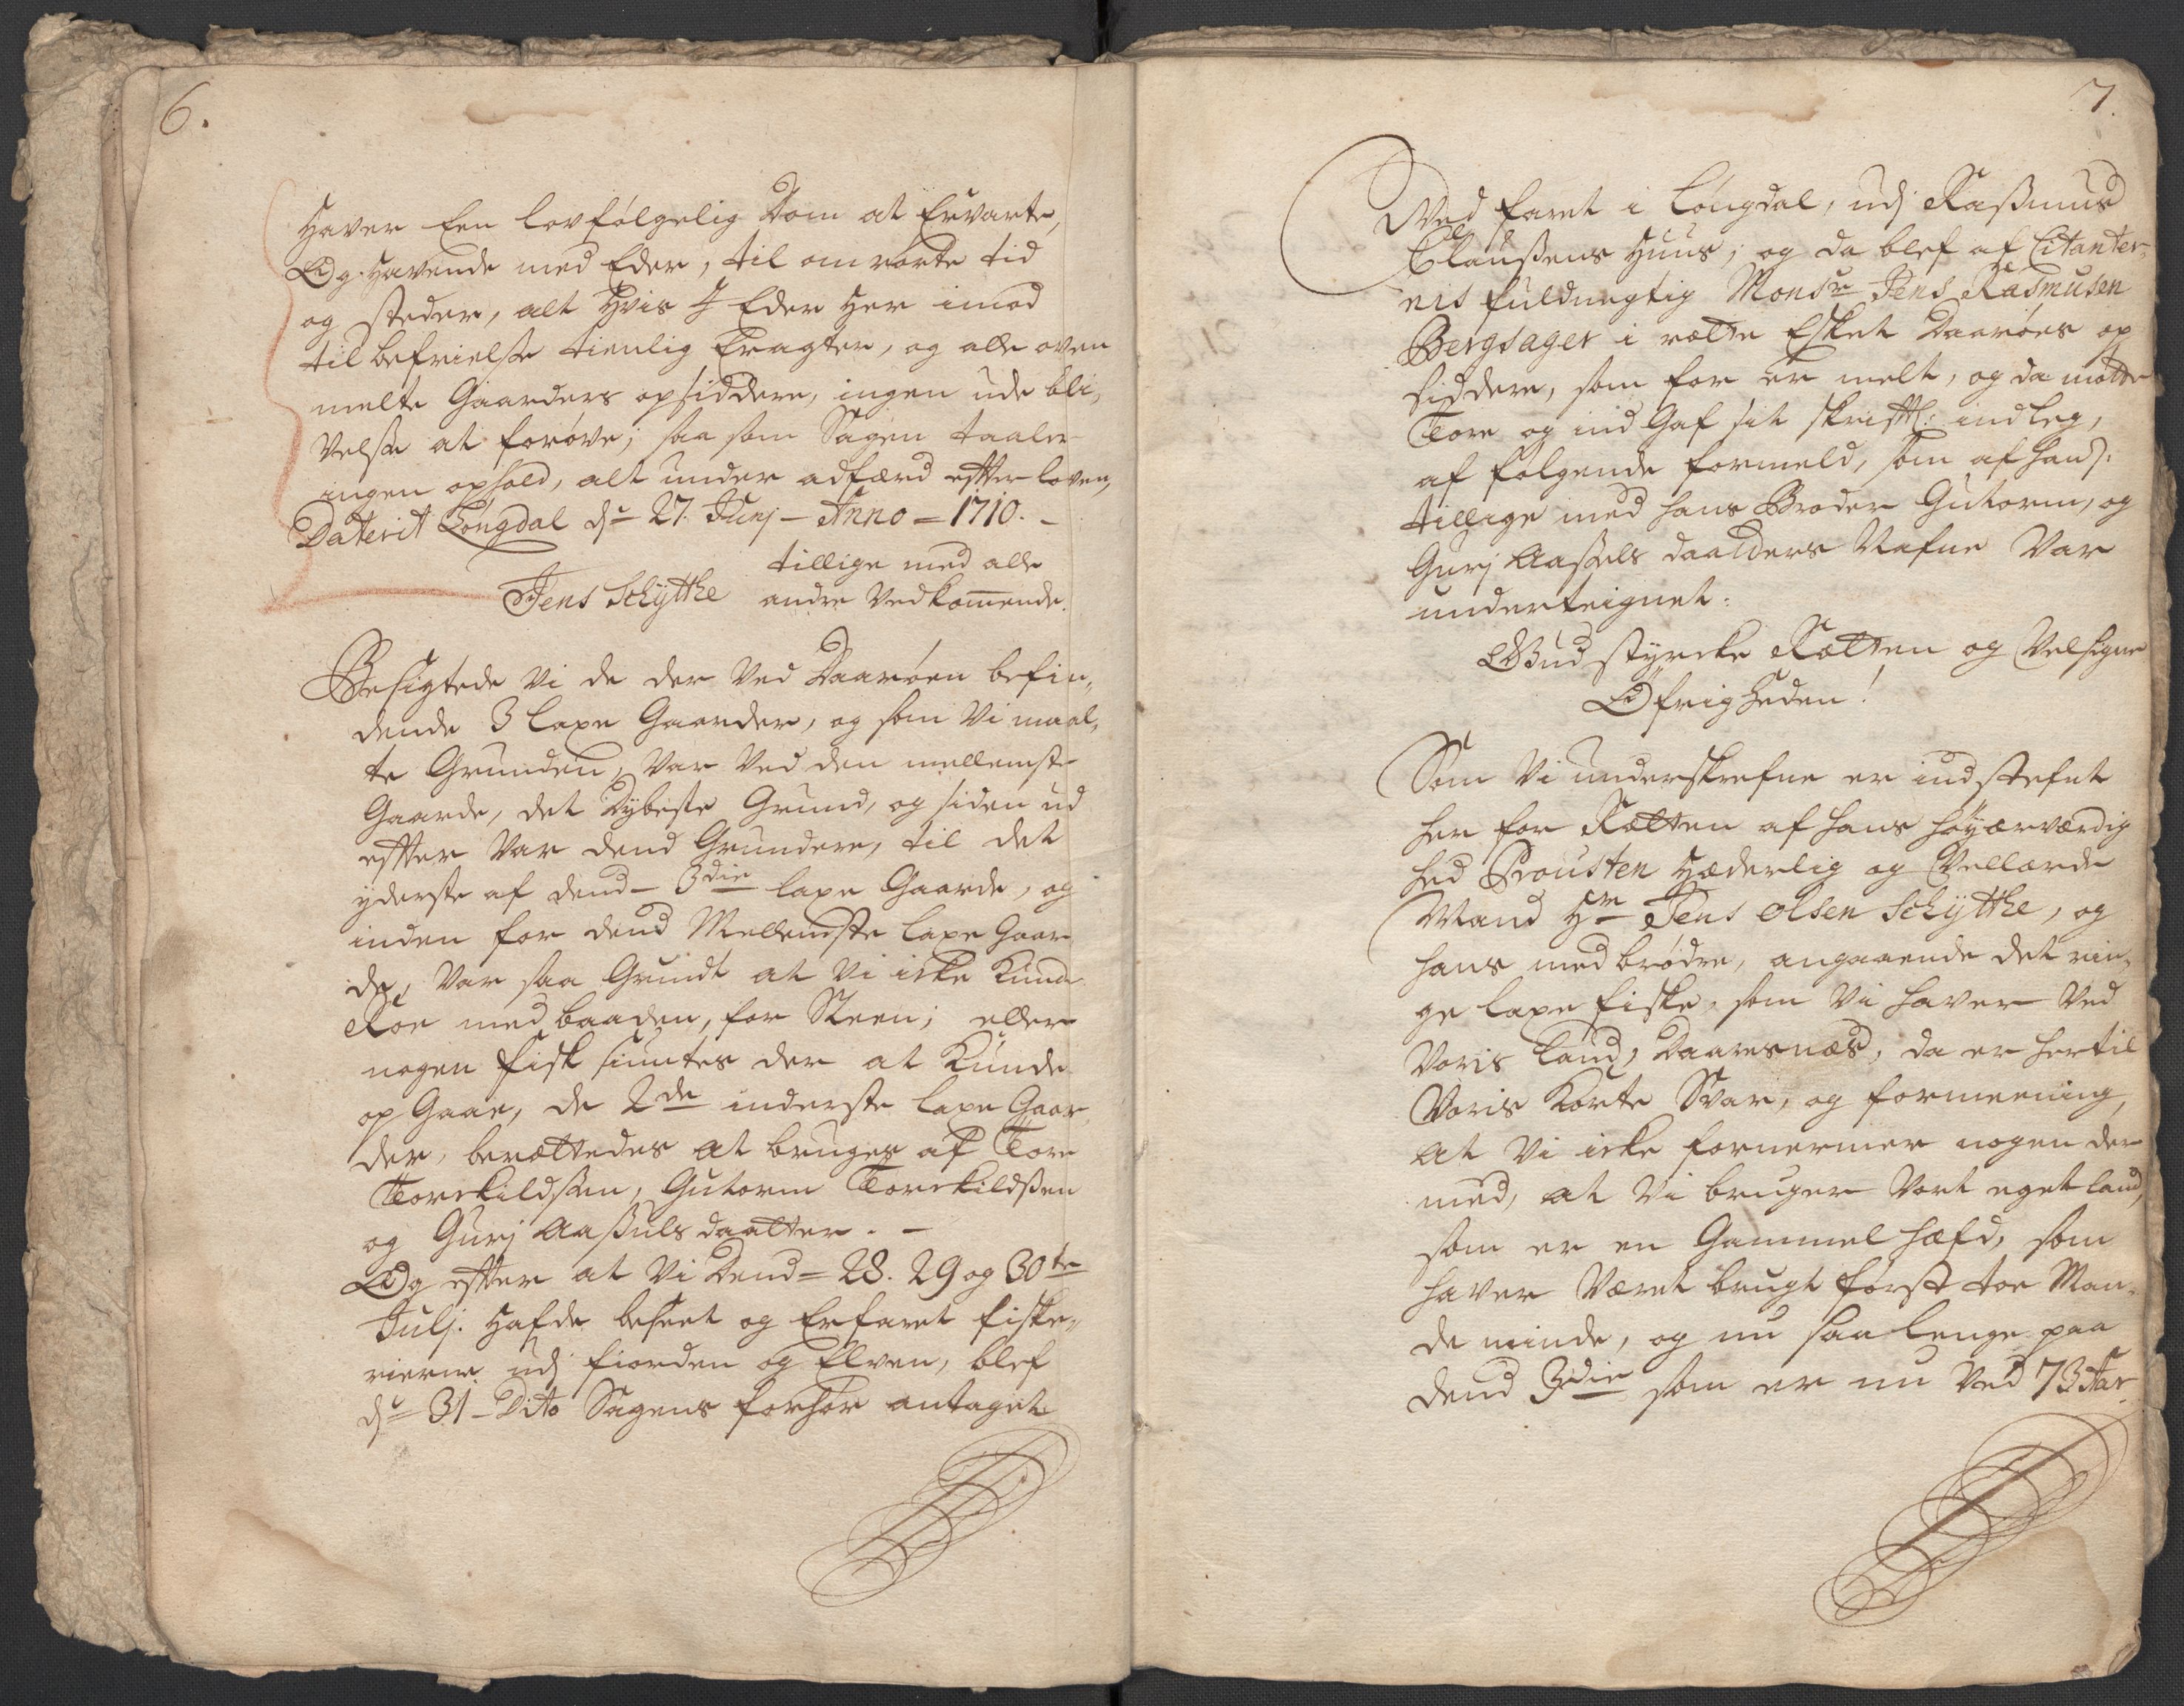 6.
Haver Een lovfølgelig Dom at Ervarte,
Og. Havende med Eder, til omrørte tid
og steder, alt Hvis I Eder Her imod
til befrielse tienlig Eragter, og alle oven
melte Gaarders opsiddere, ingen ude bli,
velse at forøve; saa som Sagen taaler
ingen ophold, alt under adfærd effter loven,
Daterit Lóngdal dn 27. Junj – Anno = 1710. –
tillige med alle
Jens Schytthe andre Vedkommende.
Besigtede Vi de der Ved Daarøen befin,
dende 3 laxe Gaarder, og som Vi maal,
te Grunden, Var Ved den mellemste
Gaarde, det Dybeste Grund, og siden ud
effter Var dend Grundere, til det
yderste af dend – 3die laxe Gaarde, og
inden for dend Mellemste laxe Gaar
de, Var saa Grundt at Vi icke Kunde
Roe med baaden, for Steen; eller
nogen fisk siuntes der at Kunde
op Gaae, de 2de inderste laxe Gaar
der, berættedes at bruges af Tore
Torckildssen, Gutorm Torckildßen
og Gurj Aaßuls daatter. –
Og effter at Vi Dend = 28. 29 og 30te
Julj. Hafde beseet og Erfaret fiske,
rierne udj fiorden og Elven, blef
dn 31 – Dito Sagens forhør antaget
7.
Ved faret i Lóngdal, udj Raßmus
Claußens Huus; og da blef af Citanter,
nis fuldmegtig Monsr Jens Rasmusen
Bergsager i rætte Esket Daarøes op
siddere, som for er melt, og da møtte
Tore og ind Gaf sit skrifftl: indleg,
af følgende formeld, som af ham
tillige med hans Broder Gutorm, og
Gurj Aassels daatters Nafne Var
underteignet:
Gud styrcke Rætten og Velsigne
Øfrigheden!
Som Vi underskrefne er indstefnt
her for Rætten af hans høyærværdig
hed Prousten Hæderlig og Vellærde
Mand Hr Jens Olsen Schytthe, og
hans medbrødre, angaaende det rin,
ge laxe fiske, som Vi haver Ved
Voris land, Daaresnæs, da er hertil
Voris Korte Svar, og formeening,
At Vi icke fornermer nogen der
med, at Vi bruger Vort eget land,
som er en Gammel hæfd, som
haver Været brugt først toe Man,
de minde, og nu saa lenge paa
dend 3die som er nu Ved 73 Aar